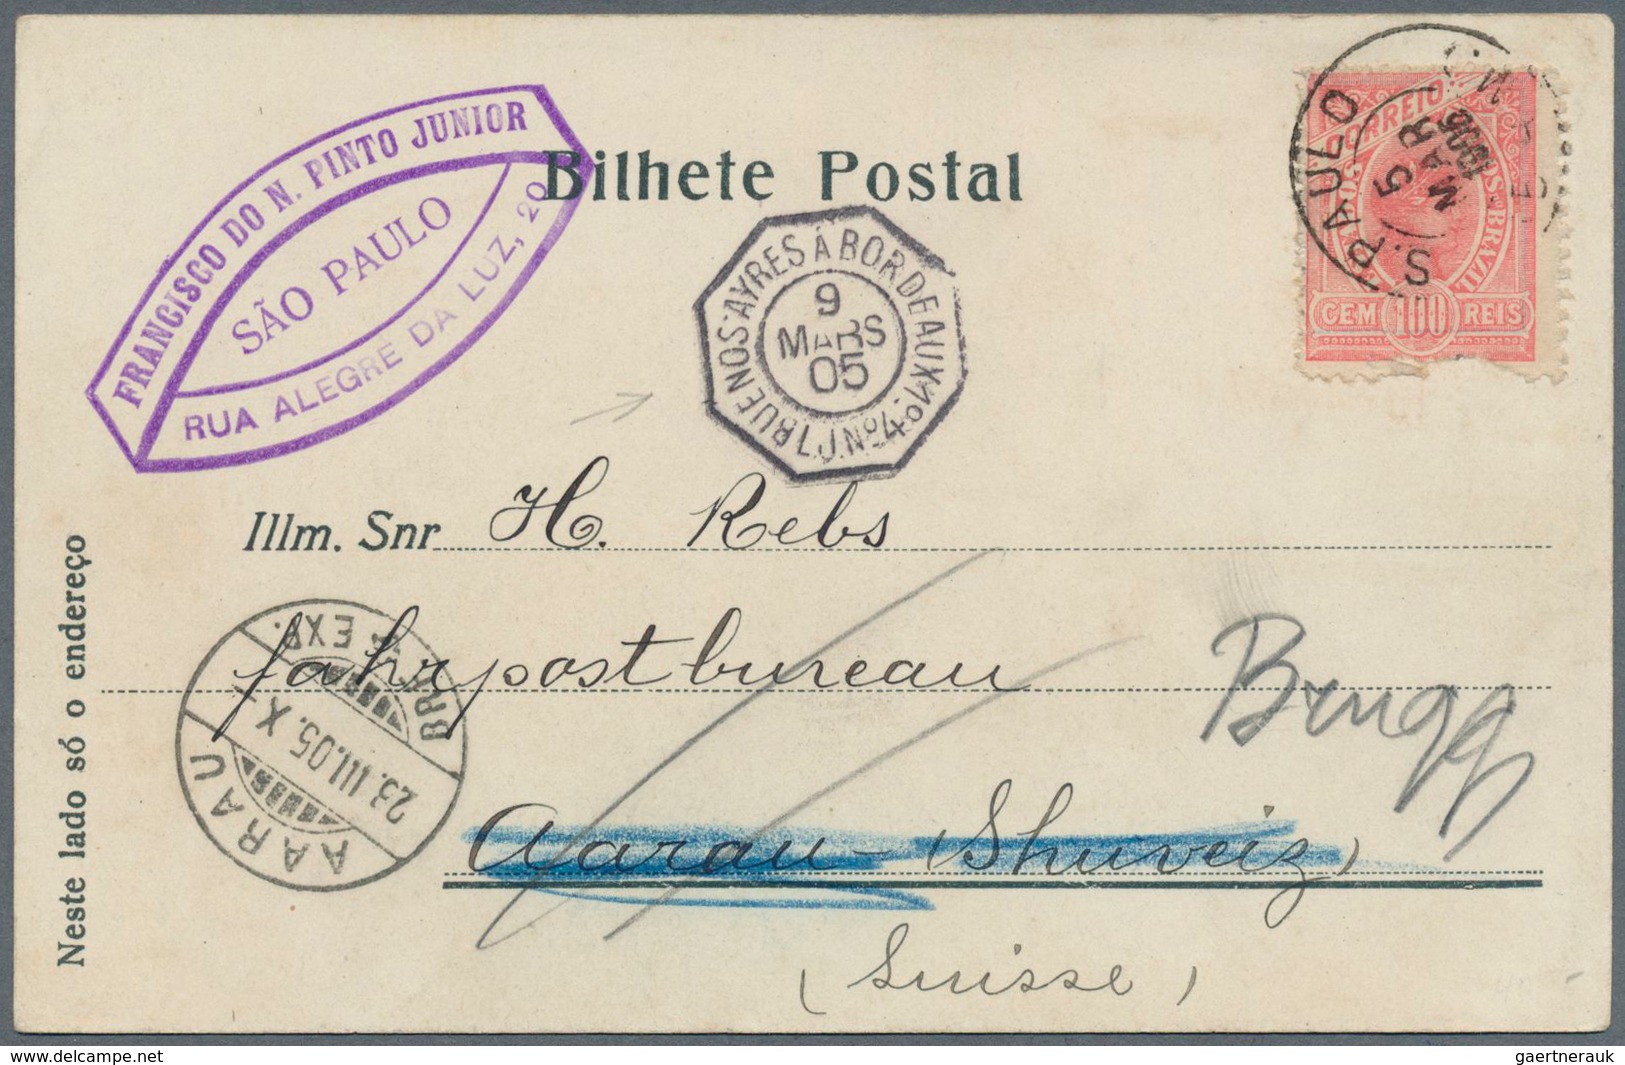 FRANCISCO DO N. PINTO JUNIOR
SÃO PAULO
RUA ALEGRE DA LUZ, 20
Bilhete Postal
S. PAULO
5 MAR
1905
CORREIO
BRAZIL
CEM 100 REIS
BUENOS-AYRES À BORDEAUX 1º
9
MARS
05
L.J Nº4
Illm. Snr H. Rebs
fahrpostbureau
Brugg
Aarau - (Shuveiz)
(Suisse)
AARAU
23. III. 05. X
BRF. EXP.
Neste lado só o endereço
gaertnerauk
www.delcampe.net